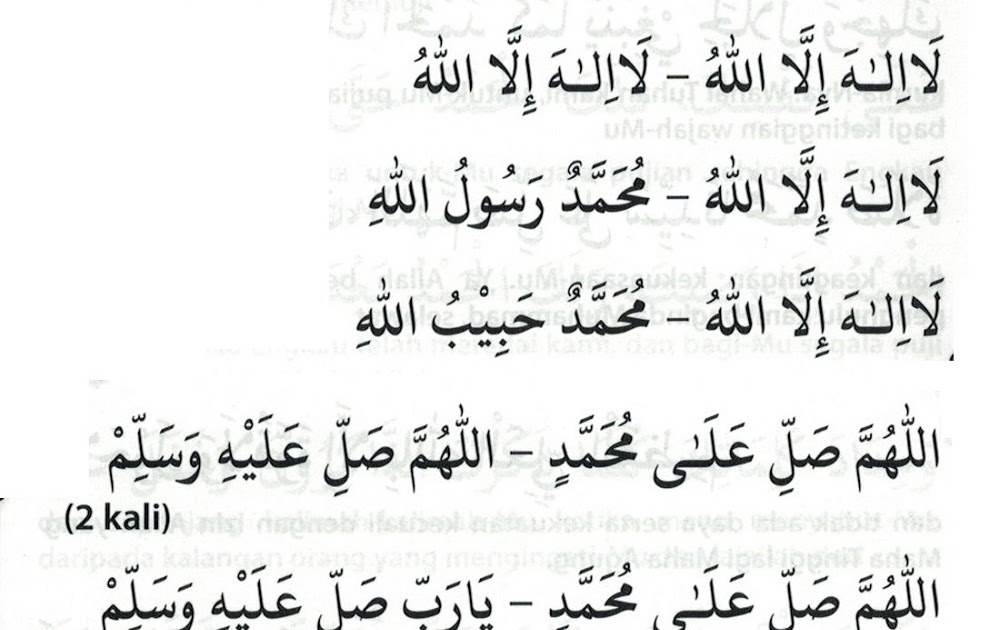 لَا اِلٰـهَ إِلَّا اللّٰهُ – لَا اِلٰـهَ إِلَّا اللّٰهُ
لَا اِلٰـهَ إِلَّا اللّٰهُ – مُحَمَّدٌ رَسُولُ اللّٰهِ
لَا اِلٰـهَ إِلَّا اللّٰهُ – مُحَمَّدٌ حَبِيْبُ اللّٰه
اللّٰهُمَّ صَلِّ عَلَـٰى مُحَمَّدٍ – اللّٰهُمَّ صَلِّ عَلَيْهِ وَسَلِّمْ
(2 kali)
اللّٰهُمَّ صَلِّ عَلَـٰى مُحَمَّدٍ – يَارَبِّ صَلِّ عَلَيْهِ وَسَلِّمْ